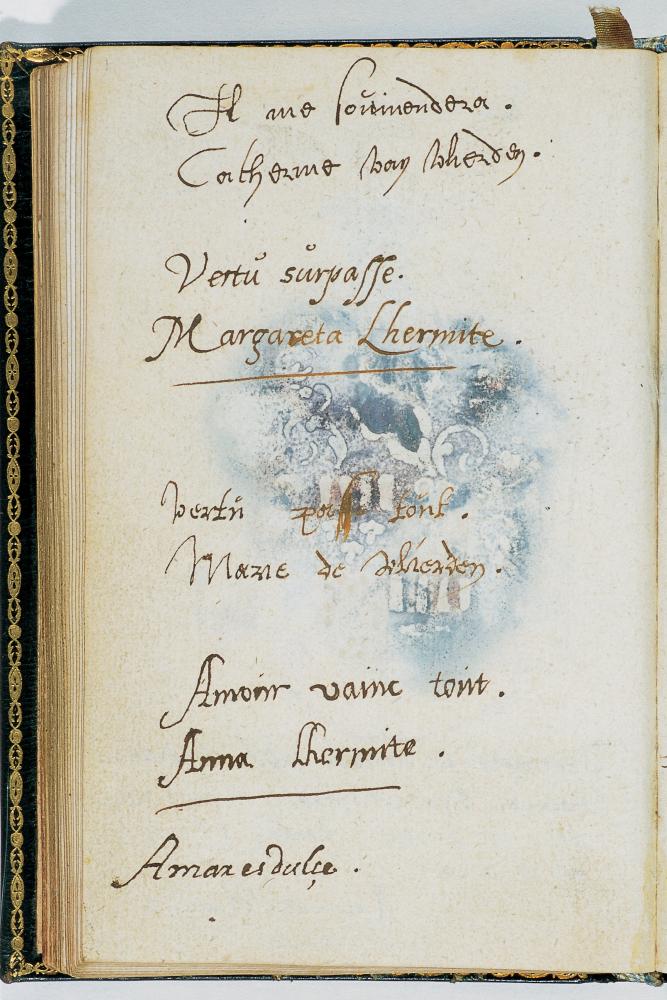 Il me souviendera.
Catherine van Wierden.
Vertŭ sŭrpasse.
Margareta Lhermite.
vertŭ passe toŭt.
Marie de Wierden.
Amour vainc tout.
Anna Lhermite.
Amar es dulçe.